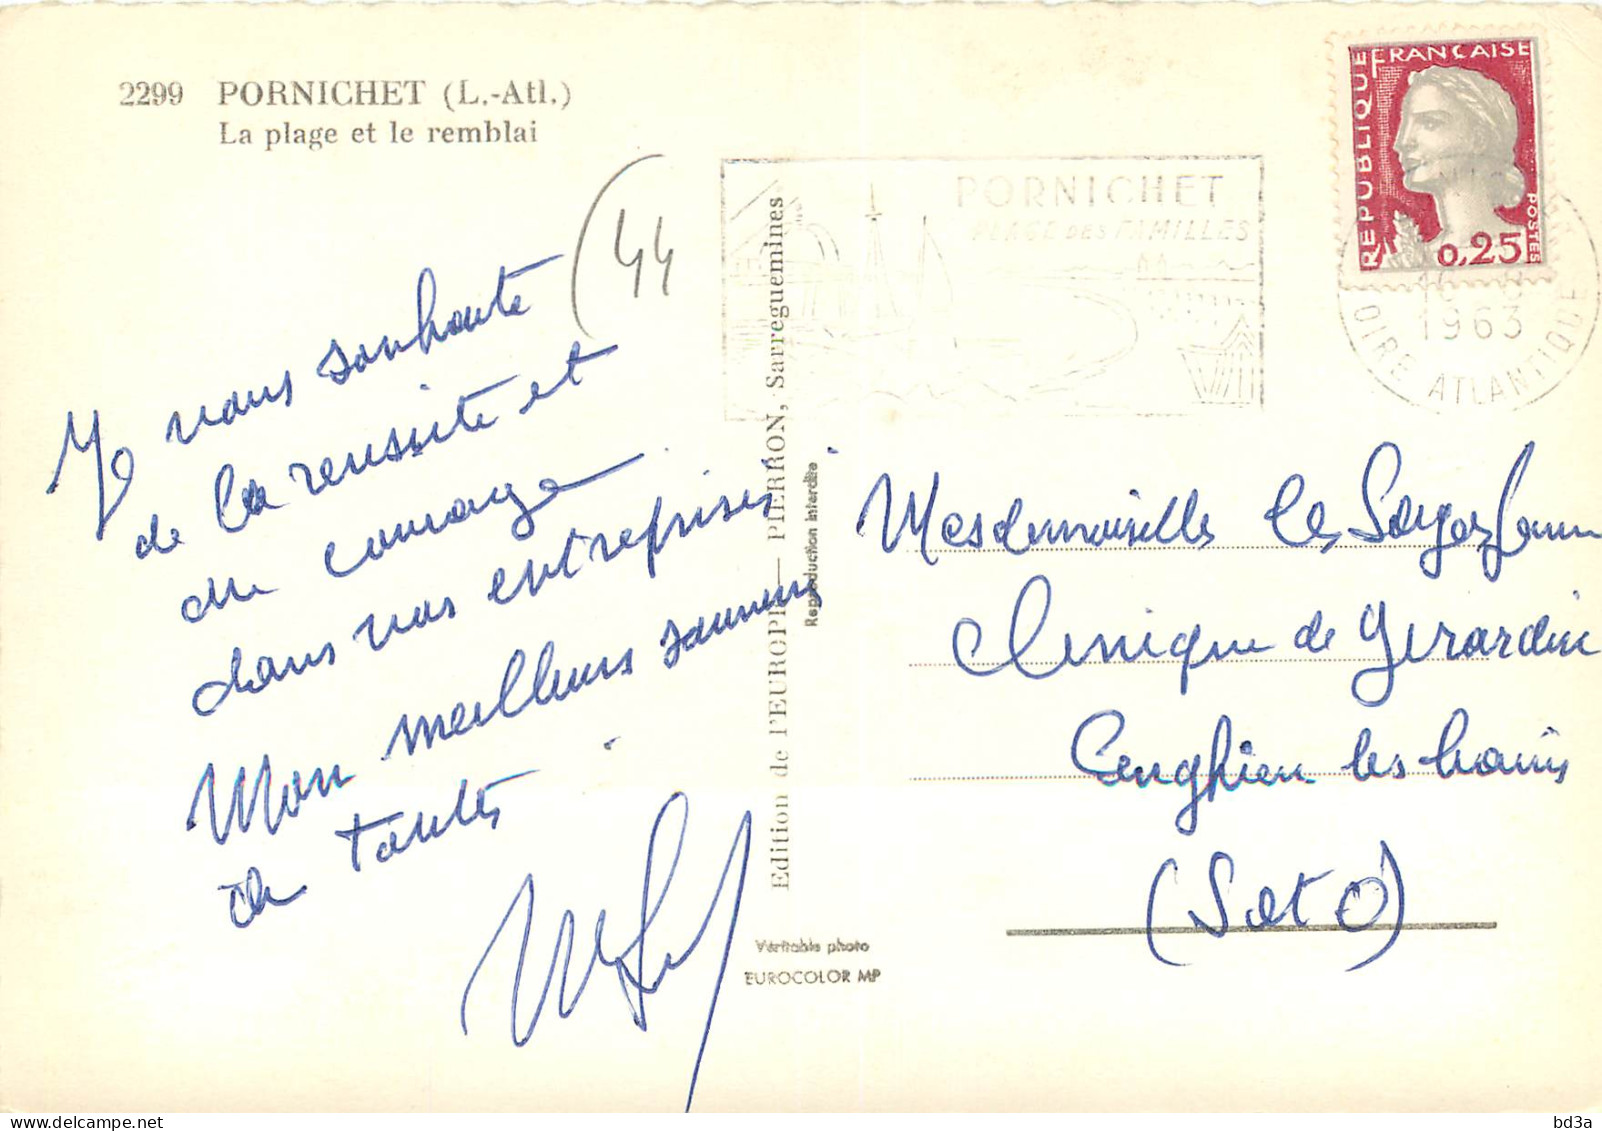 2299 PORNICHET (L.-Atl.)
La plage et le remblai
(44
Je vous souhaite
de la reussite et
du courage
dans vos entreprises
Mon meilleurs souvenir
de Tantes
Edition de l'EUROPE — PIERRON, Sarreguemines
Reproduction interdite
Véritable photo
EUROCOLOR MP
PORNICHET
PLAGE DES FAMILLES
REPUBLIQUE FRANÇAISE
POSTES
0,25
1963
LOIRE ATLANTIQUE
Mesdemoiselles les Sages femmes
Clinique de Girardin
Enghien les bains
(S et O)
delcampe.net
bd3a